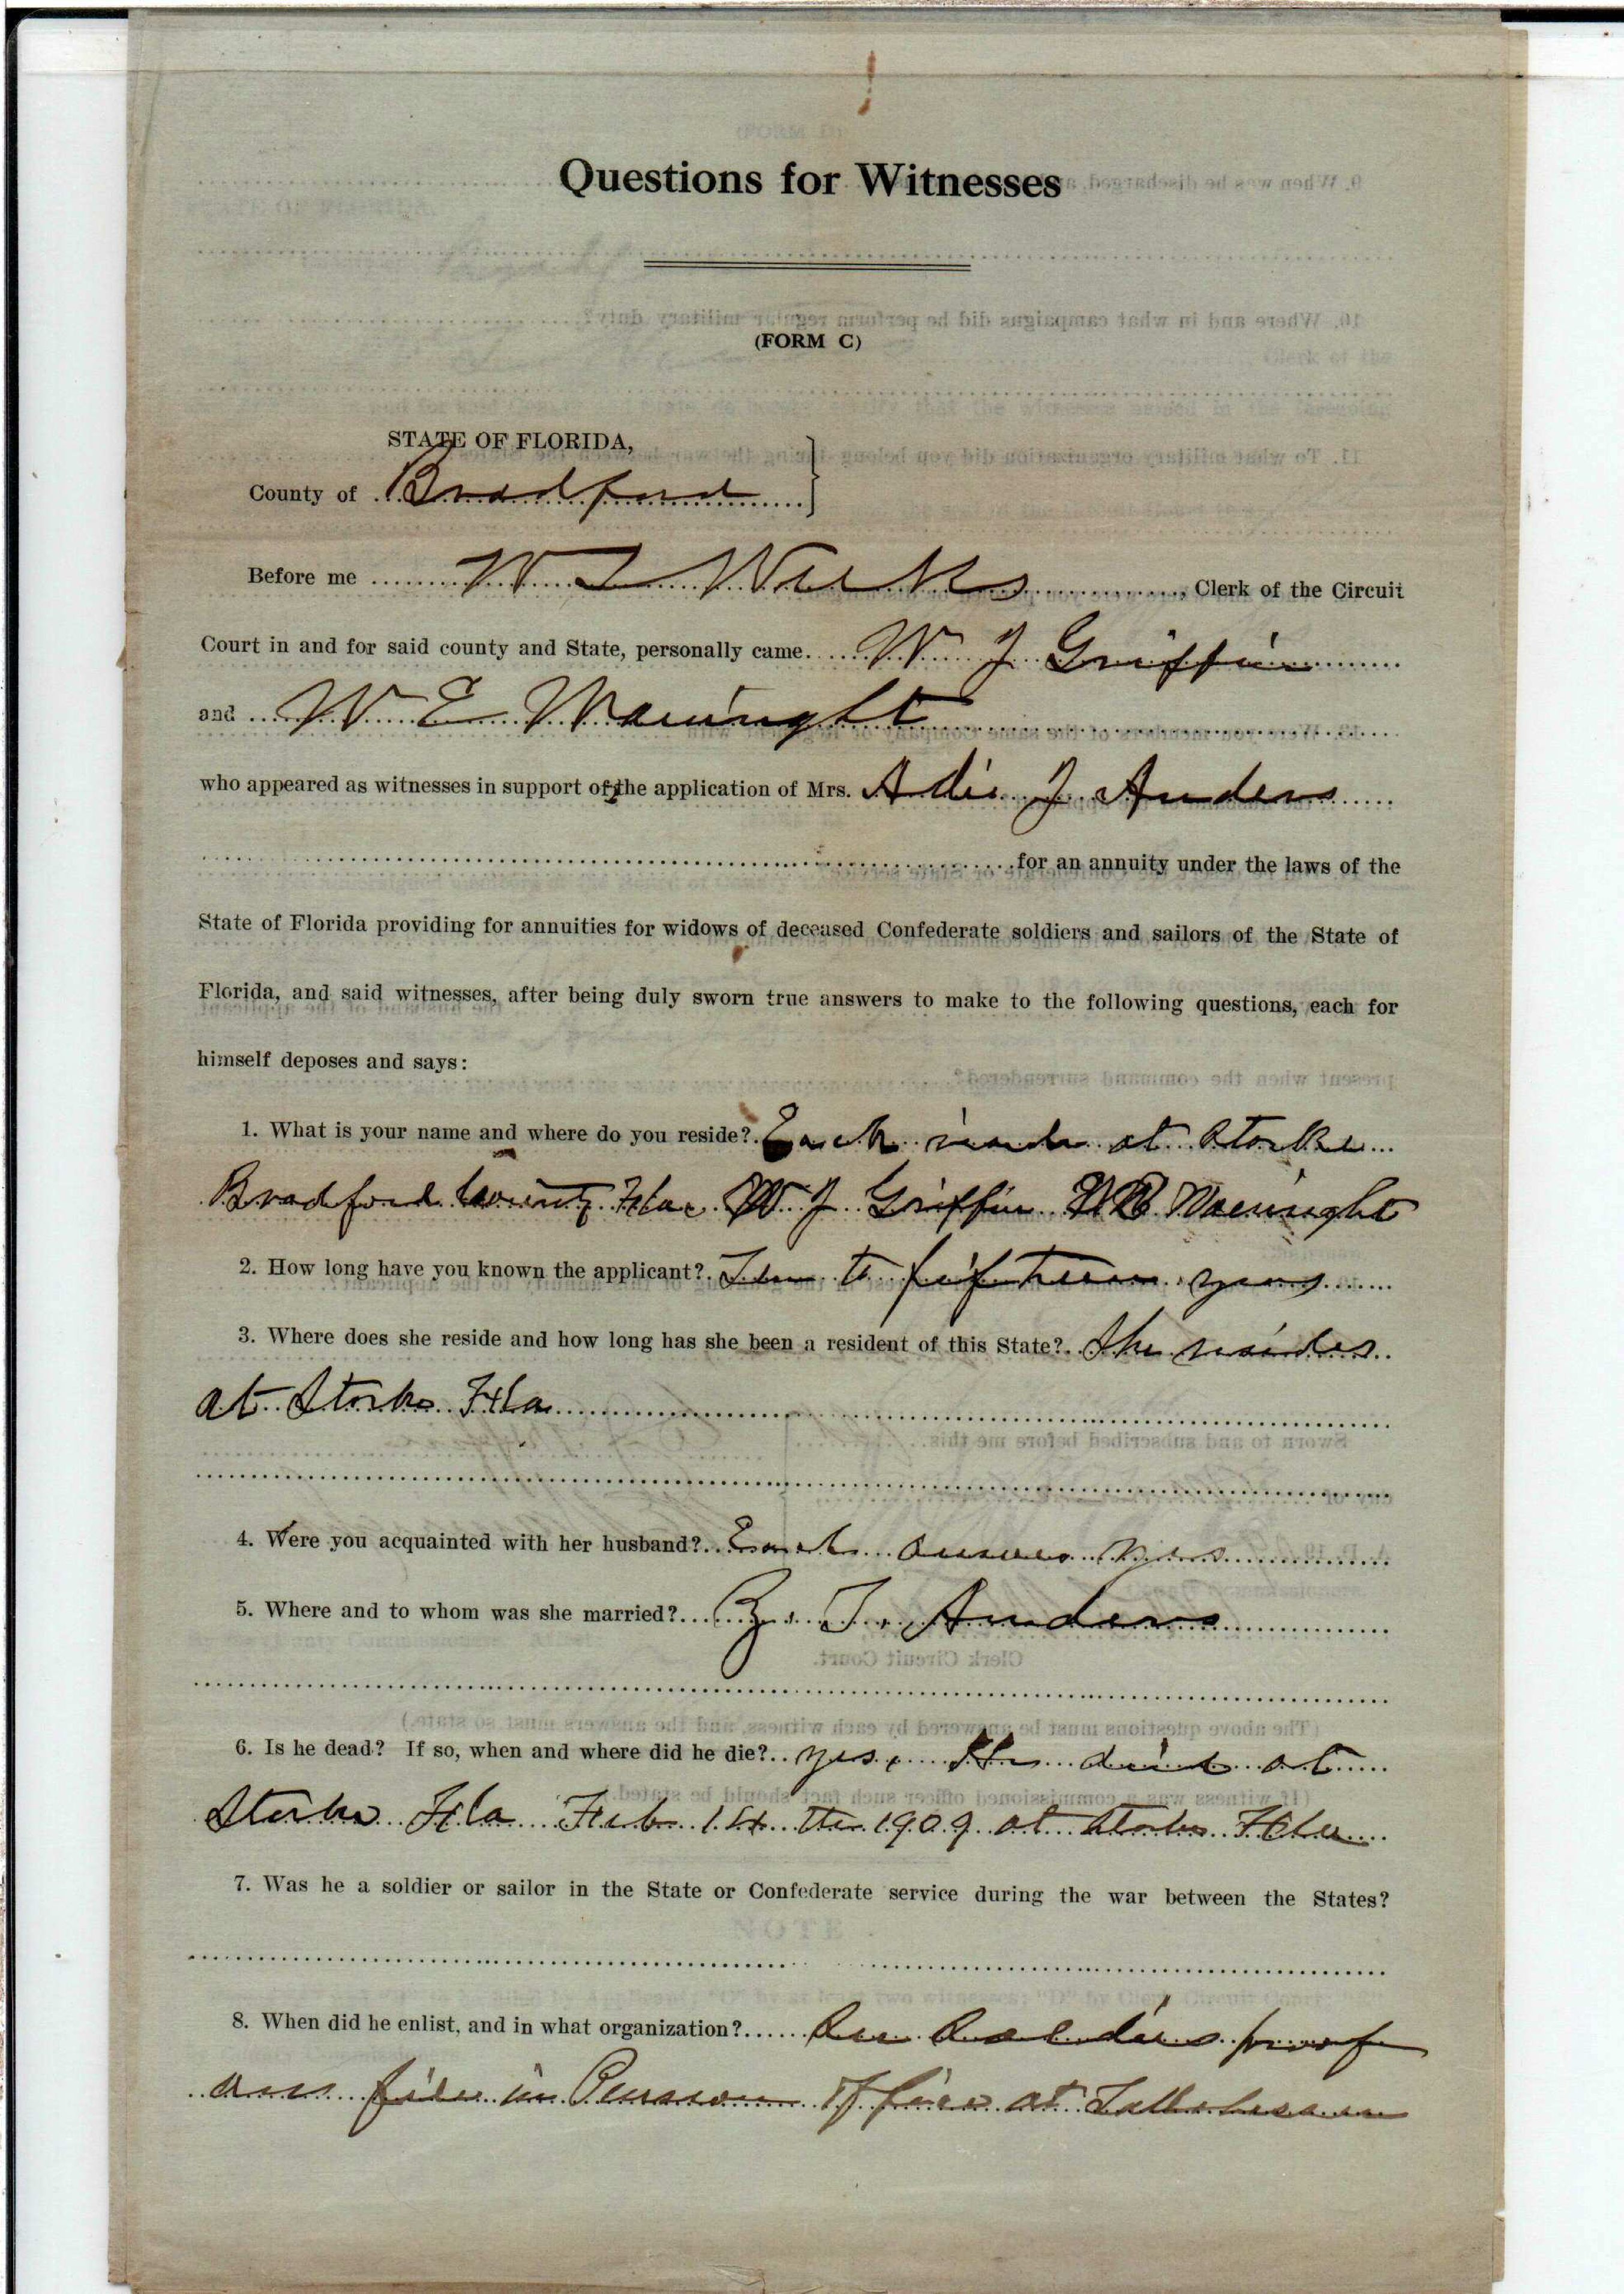 Questions for Witnesses
(FORM C)
STATE OF FLORIDA,
County of Bradford
Before me W T Weeks, Clerk of the Circuit
Court in and for said county and State, personally came W J Griffin
and W E Wainright
who appeared as witnesses in support of the application of Mrs. Adie J Anders
for an annuity under the laws of the
State of Florida providing for annuities for widows of deceased Confederate soldiers and sailors of the State of
Florida, and said witnesses, after being duly sworn true answers to make to the following questions, each for
himself deposes and says:
1. What is your name and where do you reside? Each reside at Starke
Bradford County Fla. W J Griffin W E Wainright
2. How long have you known the applicant? Ten to fifteen years
3. Where does she reside and how long has she been a resident of this State? She resides
at Starke Fla
4. Were you acquainted with her husband? Each answer yes
5. Where and to whom was she married? B. T. Anders
6. Is he dead? If so, when and where did he die? yes, He died at
Starke Fla Feb 14 th 1909 at Starke Fla
7. Was he a soldier or sailor in the State or Confederate service during the war between the States?
8. When did he enlist, and in what organization? See Soldiers proof
on file in Pension Office at Tallahassee